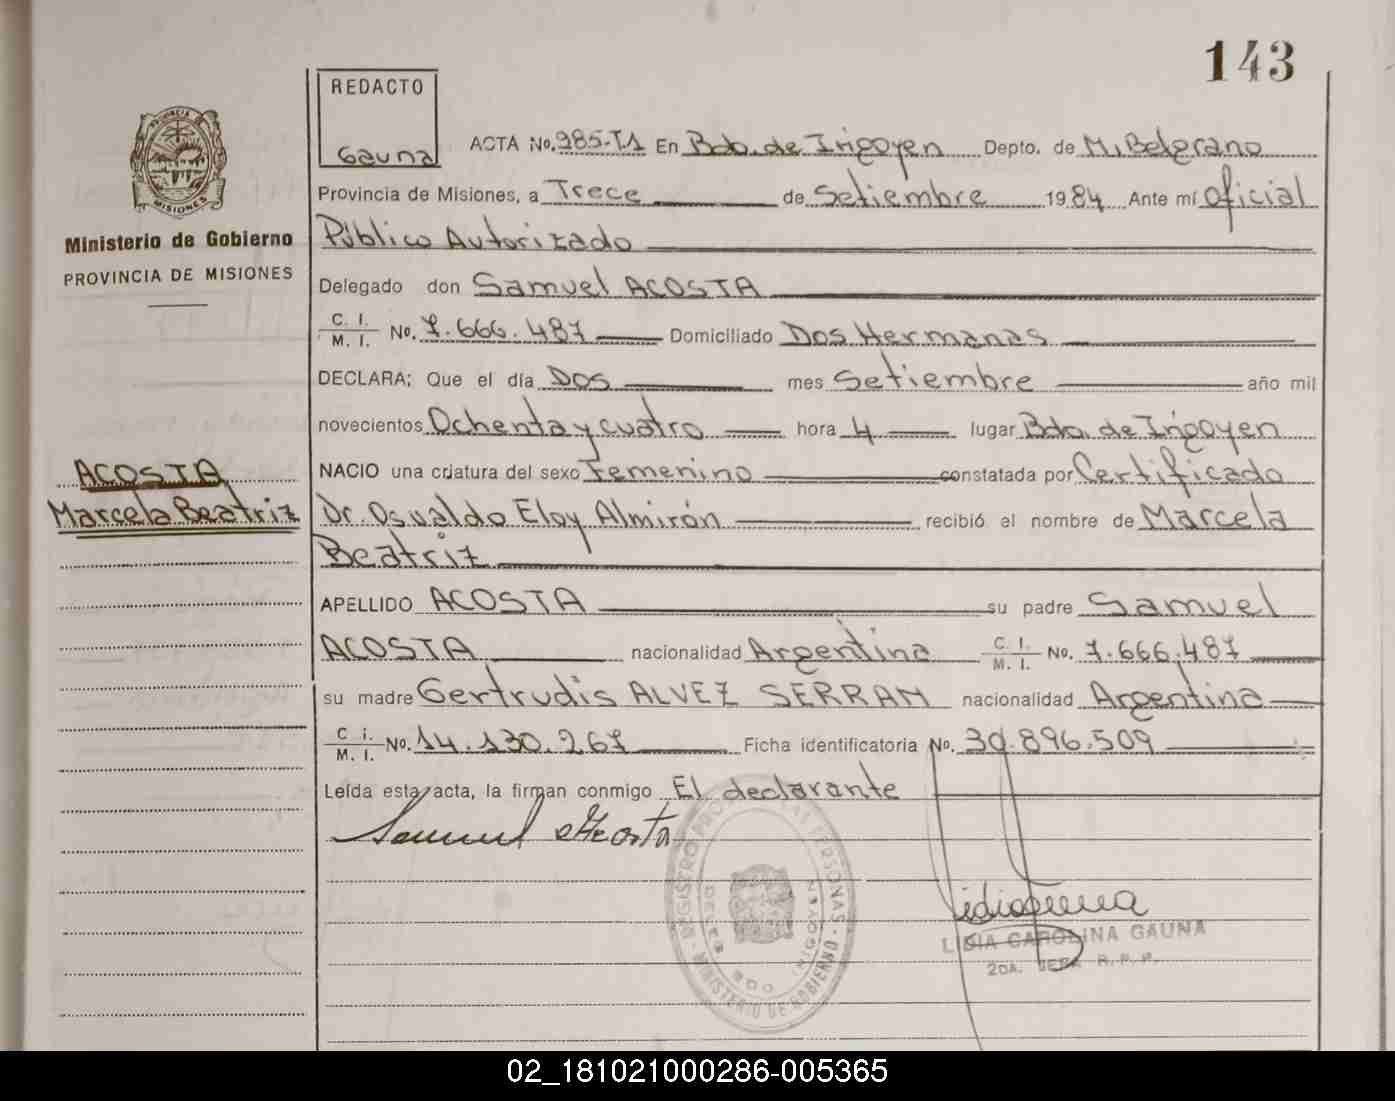 143
REDACTO
Gauna
PROVINCIA DE
MISIONES
Ministerio de Gobierno
PROVINCIA DE MISIONES
ACOSTA
Marcela Beatriz
ACTA No. 985-T1 En Bdo. de Irigoyen Depto. de M. Belgrano
Provincia de Misiones, a Trece de Setiembre 1984 Ante mí Oficial
Público Autorizado
Delegado don Samuel ACOSTA
C. I. / M. I. No. 7.666.487 Domiciliado Dos Hermanas
DECLARA; Que el día Dos mes Setiembre año mil
novecientos Ochenta y cuatro hora 4 lugar Bdo. de Irigoyen
NACIO una criatura del sexo Femenino constatada por Certificado
Dr. Osvaldo Eloy Almirón recibió el nombre de Marcela
Beatriz
APELLIDO ACOSTA su padre Samuel
ACOSTA nacionalidad Argentina C. I. / M. I. No. 7.666.487
su madre Gertrudis ALVEZ SERRAM nacionalidad Argentina
C. i. / M. I. No. 14.130.267 Ficha identificatoria No. 30.896.509
Leída esta acta, la firman conmigo El declarante
Samuel Acosta
LIDIA CAROLINA GAUNA
2DA. JEFA R. P. P.
MINISTERIO DE GOBIERNO
02_181021000286-005365